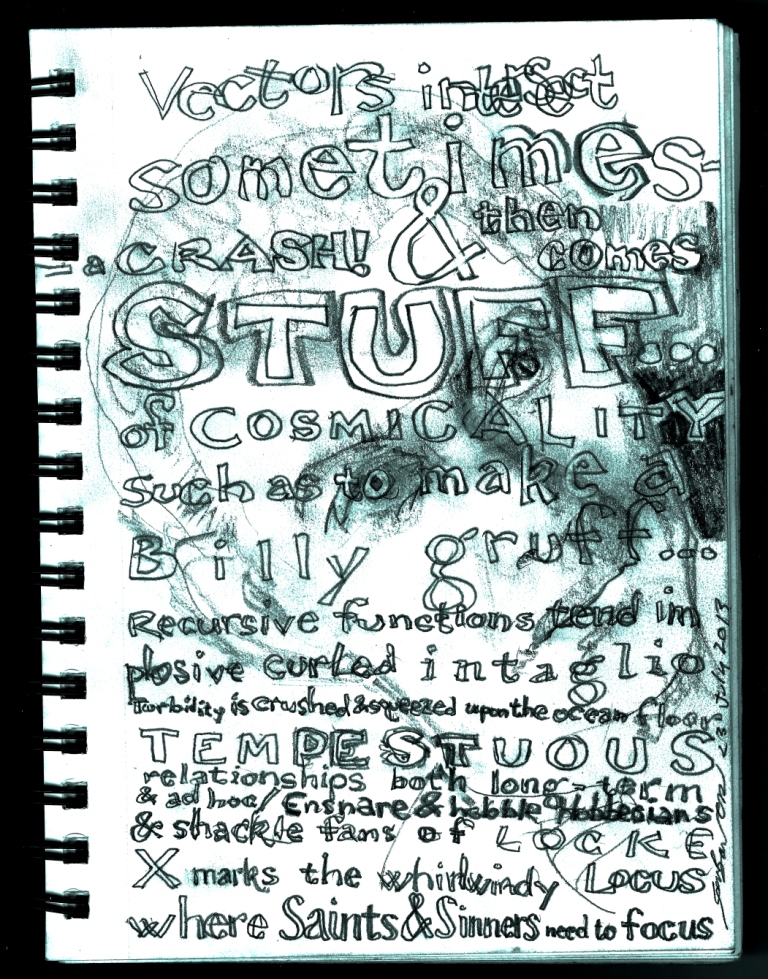 Vectors intersect
sometimes-
- a CRASH! & then comes
STUFF...
of COSMICALITY
such as to make a
Billy gruff...
Recursive functions tend im
plosive curled intaglio
Turbility is crushed & squeezed upon the ocean floor
TEMPESTUOUS
relationships both long-term
& ad hoc/ Ensnare & hobble Hobbesians
& shackle fans of LOCKE
X marks the whirlwindy Locus
where Saints & Sinners need to focus
23 July 2013